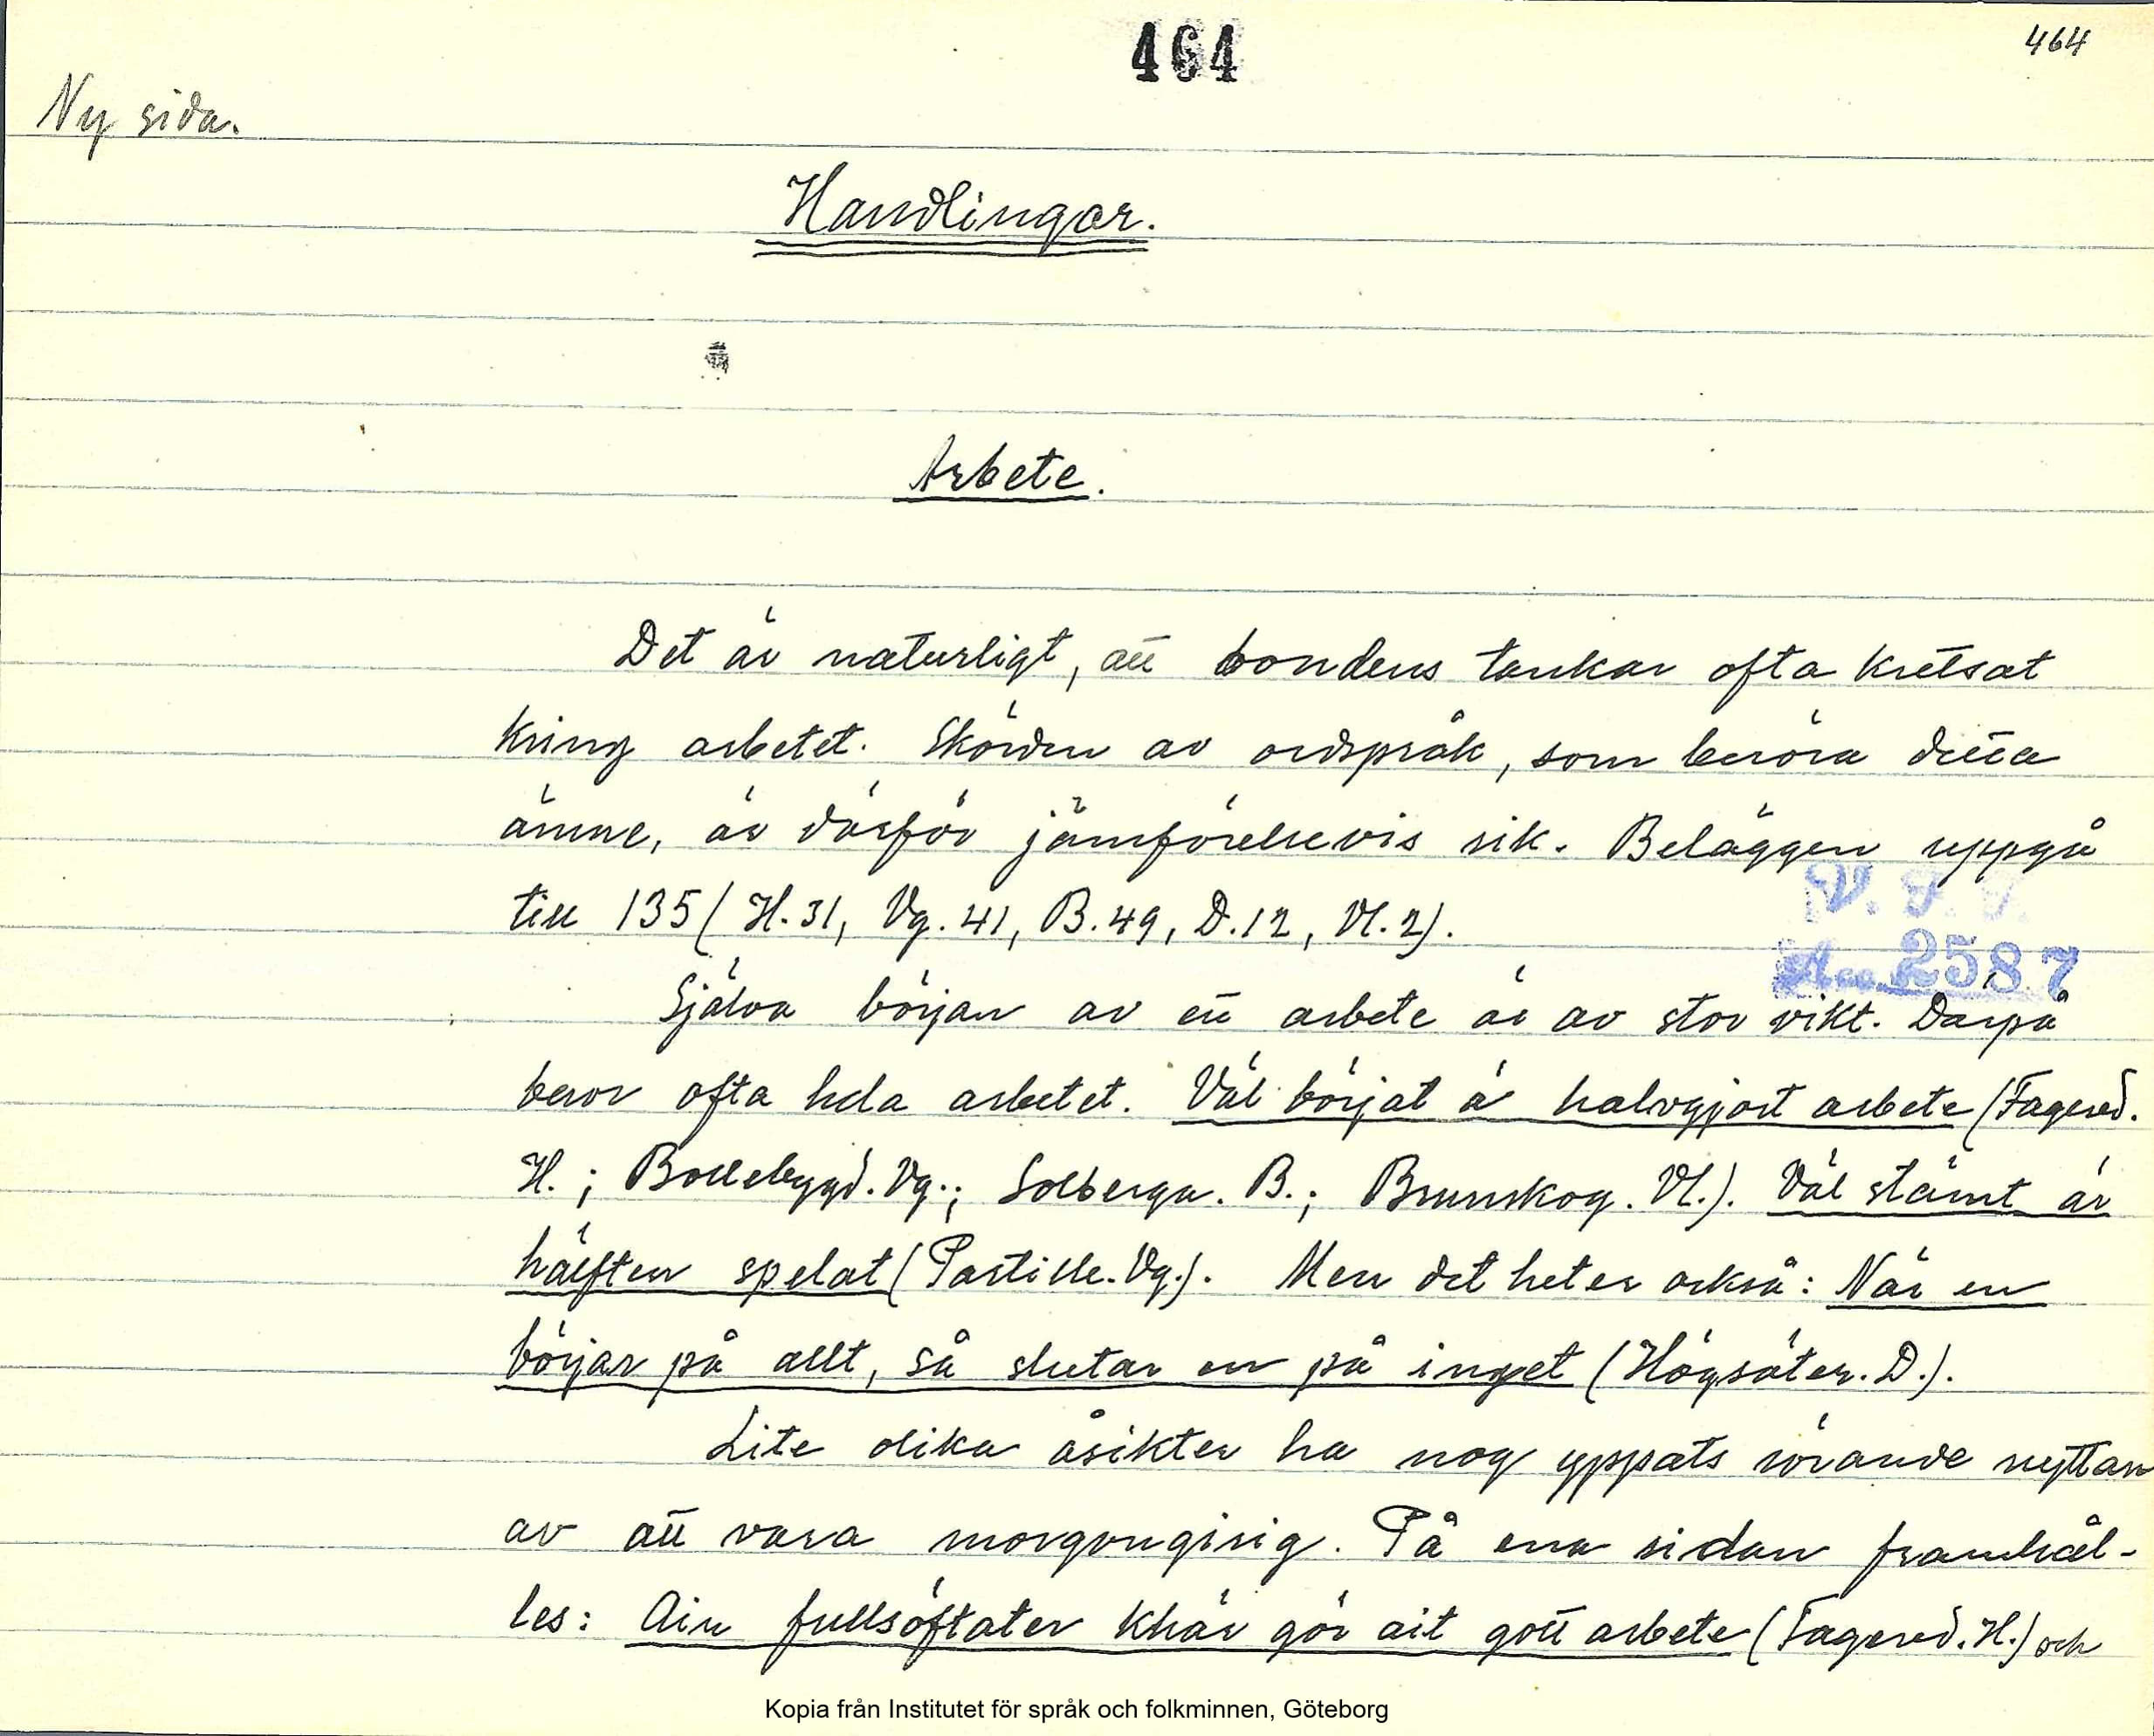 464
464
Ny sida.
Handlingar.
Arbete.
Det är naturligt, att bondens tankar ofta kretsat
kring arbetet. Skörden av ordspråk, som beröra detta
ämne, är därför jämförelsevis rik. Beläggen uppgå
till 135 (H. 31, Vg. 41, B. 49, D. 12, Vl. 2).
V. F. F.
Acc. 2587
Själva början av ett arbete är av stor vikt. Därpå
beror ofta hela arbetet. Väl börjat ä halvgjort arbete (Fagered.
H.; Bollebygd. Vg.; Solberga. B.; Brunskog. Vl.). Väl stämt är
hälften spelat (Partille. Vg.). Men det heter också: När en
börjar på allt, så slutar en på inget (Högsäter. D.).
Lite olika åsikter ha nog yppats rörande nyttan
av att vara morgongirig. På ena sidan framhål-
les: Ain fullsöftater khär gör ait gott arbete (Fagered. H.) och
Kopia från Institutet för språk och folkminnen, Göteborg